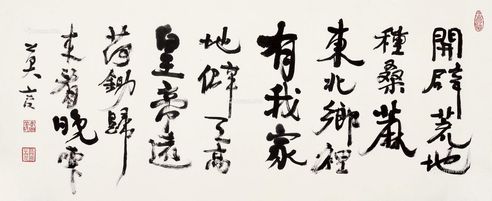 開辟荒地
種桑麻
東北鄉裡
有我家
地僻天高
皇帝遠
荷鋤歸
来看晚霞
莫言